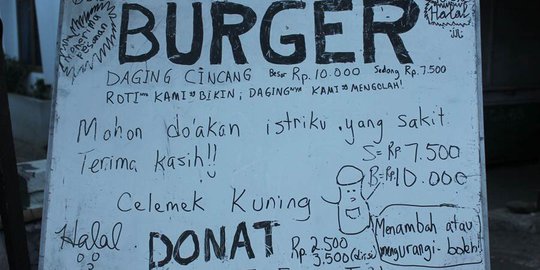 Menerima
Pesanan
BURGER
Halal
DAGING CINCANG Besar Rp. 10.000 Sedang Rp. 7.500
ROTInya KAMI BIKIN; DAGINGnya KAMI MENGOLAH!
Mohon do'akan istriku yang sakit
Terima kasih!!
S = Rp 7.500
B = Rp 10.000
Celemek Kuning
Halal
DONAT
Rp 2.500
3.500 (diisi)
Menambah atau
mengurangi boleh!